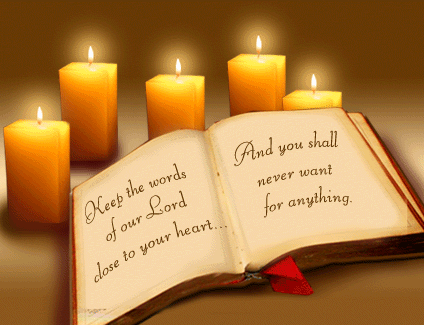 Keep the words
of our Lord
close to your heart...
And you shall
never want
for anything.